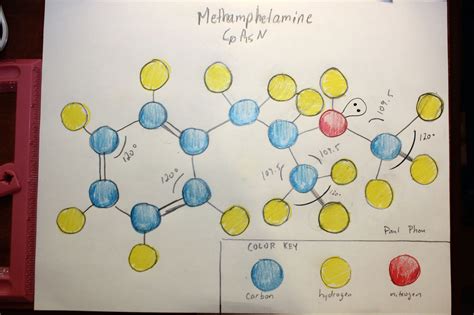 Methamphetamine
109.5
120°
120°
109.5
109.5
120°
120°
Paul Phan
COLOR KEY
carbon
hydrogen
nitrogen